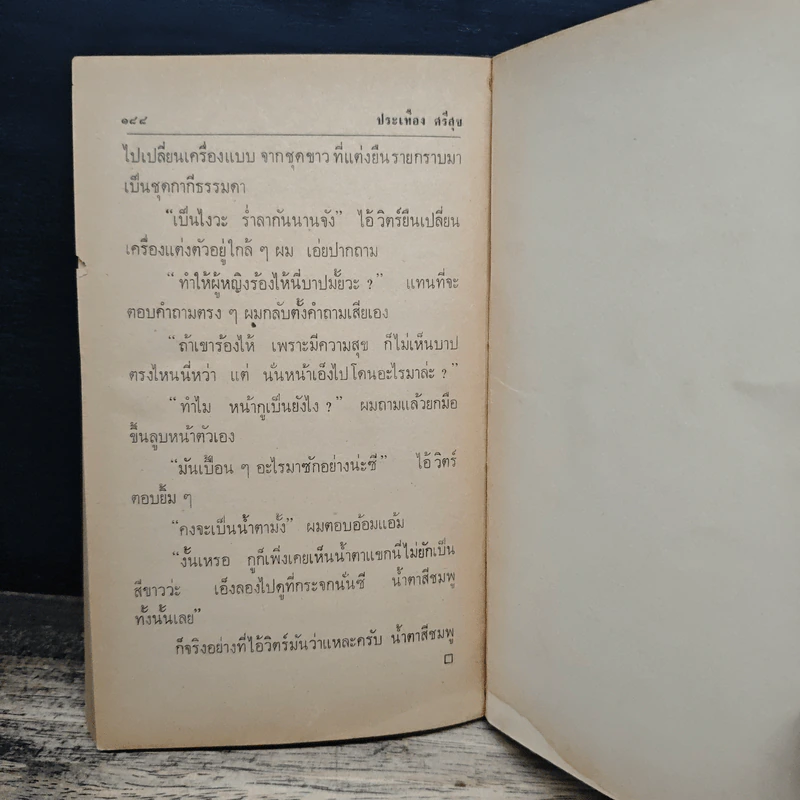 ๑๔๔ ประเทือง ศรีสุข
ไปเปลี่ยนเครื่องแบบ จากชุดขาว ที่แต่งยืนรายกราบมา
เป็นชุดกากีธรรมดา
“เป็นไงวะ ร่ำลากันนานจัง” ไอ้วิตร์ยืนเปลี่ยน
เครื่องแต่งตัวอยู่ใกล้ ๆ ผม เอ่ยปากถาม
“ทำให้ผู้หญิงร้องไห้นี่บาปมั้ยวะ ?” แทนที่จะ
ตอบคำถามตรง ๆ ผมกลับตั้งคำถามเสียเอง
“ถ้าเขาร้องไห้ เพราะมีความสุข ก็ไม่เห็นบาป
ตรงไหนนี่หว่า แต่ นั่นหน้าเอ็งไปโดนอะไรมาล่ะ ?”
“ทำไม หน้ากูเป็นยังไง ?” ผมถามแล้วยกมือ
ขึ้นลูบหน้าตัวเอง
“มันเปื้อน ๆ อะไรมาซักอย่างน่ะซี” ไอ้วิตร์
ตอบยิ้ม ๆ
“คงจะเป็นน้ำตามั้ง” ผมตอบอ้อมแอ้ม
“งั้นเหรอ กูก็เพิ่งเคยเห็นน้ำตาแขกนี่ไม่ยักเป็น
สีขาวว่ะ เอ็งลองไปดูที่กระจกนั่นซี น้ำตาสีชมพู
ทั้งนั้นเลย”
ก็จริงอย่างที่ไอ้วิตร์มันว่าแหละครับ น้ำตาสีชมพู